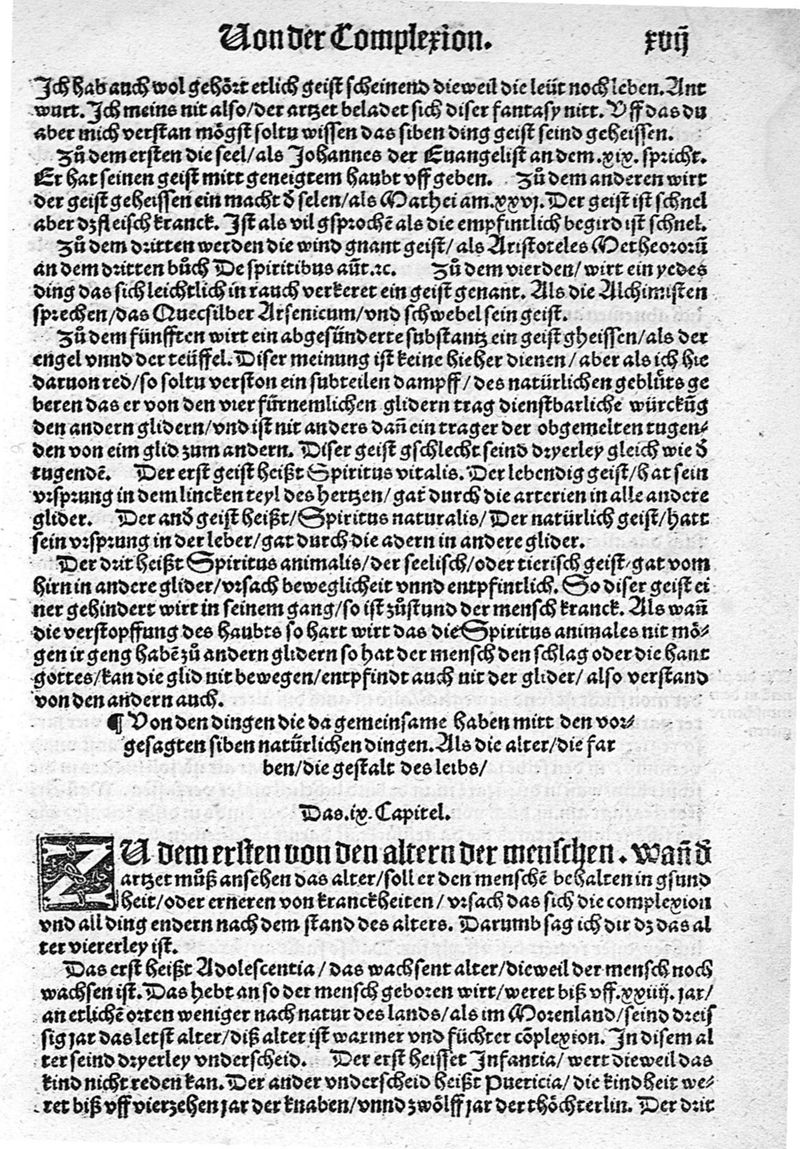 Von der Complexion. xvij
Ich hab auch wol gehört etlich geist scheinend dieweil die leüt noch leben. Ant
wurt. Ich meins nit also/der artzet beladet sich diser fantasy nitt. Vff das du
aber mich verstan mögst soltu wissen das siben ding geist seind geheissen.
Zů dem ersten die seel/als Johannes der Euangelist an dem .xix. spricht.
Er hat seinen geist mitt geneigtem haubt vff geben. Zů dem anderen wirt
der geist geheissen ein macht d̄ selen/als Mathei am .xxvj. Der geist ist schnel
aber dz fleisch kranck. Ist als vil gsprochē als die empfintlich begird ist schnel.
Zů dem dritten werden die wind gnant geist/als Aristoteles Metheororū
an dem dritten bůch De spiritibus aūt. ⁊c. Zů dem vierden/wirt ein yedes
ding das sich leichtlich in rauch verkeret ein geist genant. Als die Alchimisten
sprechen/das Quecsilber Arsenicum/vnd schwebel sein geist.
Zů dem fünfften wirt ein abgesünderte substantz ein geist gheissen/als der
engel vnnd der teüffel. Diser meinung ist keine hieher dienen/aber als ich hie
daruon red/so soltu verston ein subteilen dampff/des natürlichen geblůts ge
beren das er von den vier fürnemlichen glidern trag dienstbarliche würckūg
den andern glidern/vnd ist nit anders dan̄ ein trager der obgemelten tugen-
den von eim glid zum andern. Diser geist gschlecht seind dryerley gleich wie d̄
tugendē. Der erst geist heißt Spiritus vitalis. Der lebendig geist/hat sein
vrsprung in dem lincken teyl des hertzen/gat durch die arterien in alle andere
glider. Der and̄ geist heißt/Spiritus naturalis/Der natürlich geist/hatt
sein vrsprung in der leber/gat durch die adern in andere glider.
Der drit heißt Spiritus animalis/der seelisch/oder tierisch geist-gat vom
hirn in andere glider/vrsach beweglicheit vnnd entpfintlich. So diser geist ei
ner gehindert wirt in seinem gang/so ist zůstund der mensch kranck. Als wan̄
die verstopffung des haubts so hart wirt das die Spiritus animales nit mö-
gen ir geng habē zů andern glidern so hat der mensch den schlag oder die hant
gottes/kan die glid nit bewegen/entpfindt auch nit der glider/also verstand
von den andern auch.
¶ Von den dingen die da gemeinsame haben mitt den vor-
gesagten siben natürlichen dingen. Als die alter/die far
ben/die gestalt des leibs/
Das .ix. Capitel.
ZU dem ersten von den altern der menschen. Wan̄ d̄
artzet můß ansehen das alter/soll er den menschē behalten in gsund
heit/oder erneren von kranckheiten/vrsach das sich die complexion
vnd all ding endern nach dem stand des alters. Darumb sag ich dir dz das al
ter viererley ist.
Das erst heißt Adolescentia/das wachsent alter/dieweil der mensch noch
wachsen ist. Das hebt an so der mensch geboren wirt/weret biß vff .xxiiij. jar/
an etlichē orten weniger nach natur des lands/als im Morenland/seind dreis
sig jar das letst alter/diß alter ist warmer vnd füchter cōplexion. In disem al
ter seind dryerley vnderscheid. Der erst heisset Infantia/wert dieweil das
kind nicht reden kan. Der ander vnderscheid heißt Puericia/die kindheit we-
ret biß vff vierzehen jar der knaben/vnnd zwölff jar der thöchterlin. Der drit